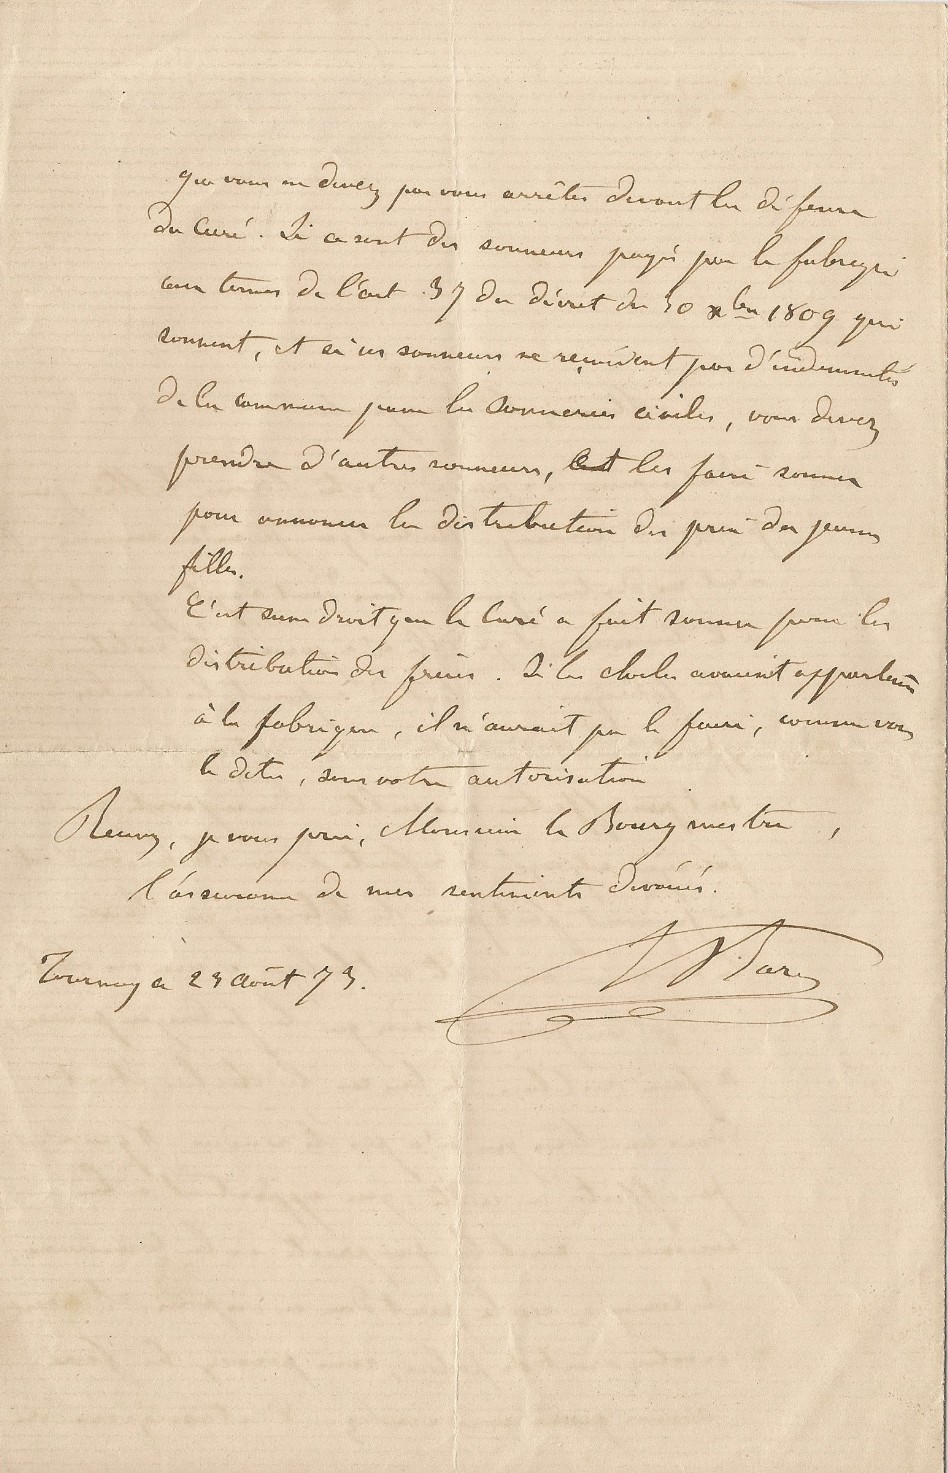 que vous ne devez pas vous arrêter devant la défense
du Curé. Si ce sont des sonneurs payés par la fabrique
aux termes de l'art. 37 du décret du 30 xbre 1809 qui
sonnent, et si ces sonneurs ne reçoivent pas d'indemnités
de la commune pour les sonneries civiles, vous devez
prendre d'autres sonneurs, et les faire sonner
pour annoncer la distribution des prix des jeunes
filles.
C'est sans droit que le Curé a fait sonner pour les
distribution des frères. Si les cloches avaient appartenu
à la fabrique, il n'aurait pu le faire, comme vous
le dites, sans votre autorisation
Recevez, je vous prie, Monsieur le Bourgmestre,
l'assurance de mes sentiments dévoués.
Tournay ce 23 août 73.